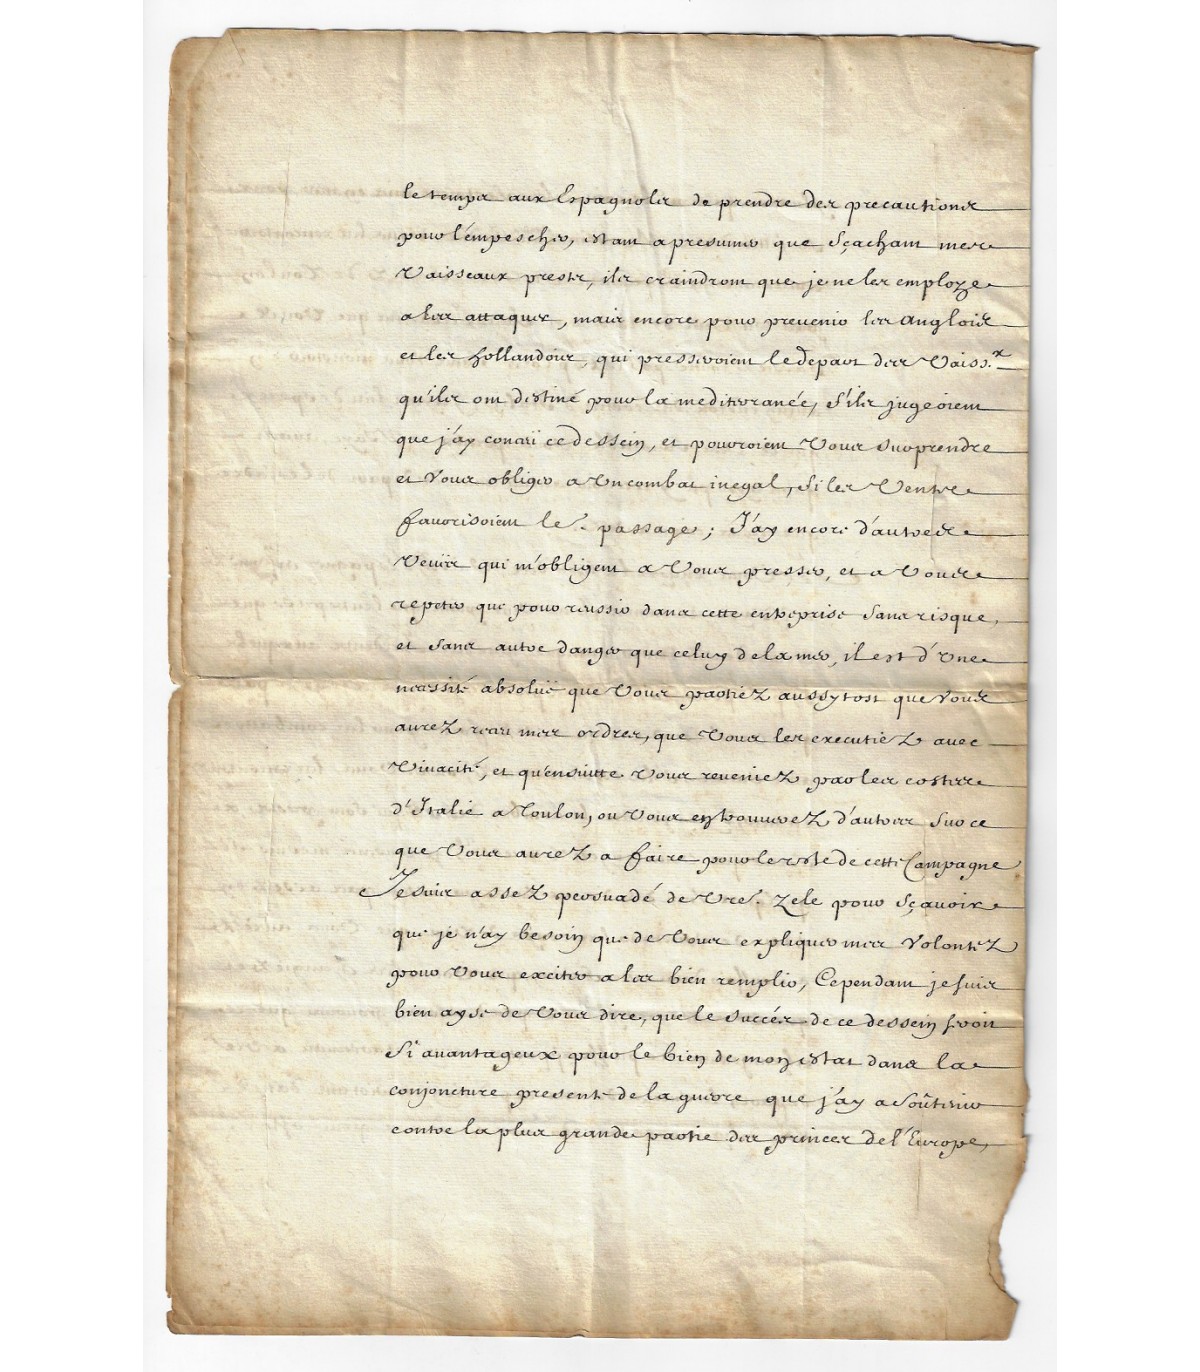 le temps aux Espagnols de prendre des precautions
pour l'empescher, estant a presumer que sçachant mes
Vaisseaux prests, ils craindront que je ne les employe
a les attaquer, mais encore pour prevenir les Anglois
et les Hollandois, qui presseroient le depart des Vaiss.x
qu'ils ont destiné pour la mediteranée, s'ils jugeoient
que j'ay conceü ce dessein, et pouroient Vous surprendre
et Vous obliger a Un combat inegal, si les Vents
favorisoient le passage; J'ay encore d'autres
Veuës qui m'obligent a Vous presser, et a Vous
repeter que pour reussir dans cette entreprise sans risque,
et sans autre danger que celuy de la mer, il est d'Une
necessité absoluë que Vous partiez aussytost que Vous
aurez receu mes ordres, que Vous les executiez avec
Vivacité, et qu'ensuitte Vous reveniez par les costes
d'Italie a Toulon, ou Vous en trouverez d'autres sur ce
que Vous aurez a faire pour le reste de cette Campagne
Je suis assez persuadé de Vre. zele pour sçavoir
que je n'ay besoin que de Vous expliquer mes Volontez
pour Vous exciter a les bien remplir, Cependant je suis
bien ayse de Vous dire, que le succés de ce dessein seroit
si avantageux pour le bien de mon estat dans la
conjoncture presente de la guerre que j'ay a soûtenir
contre la plus grande partie des princes de l'Europe,